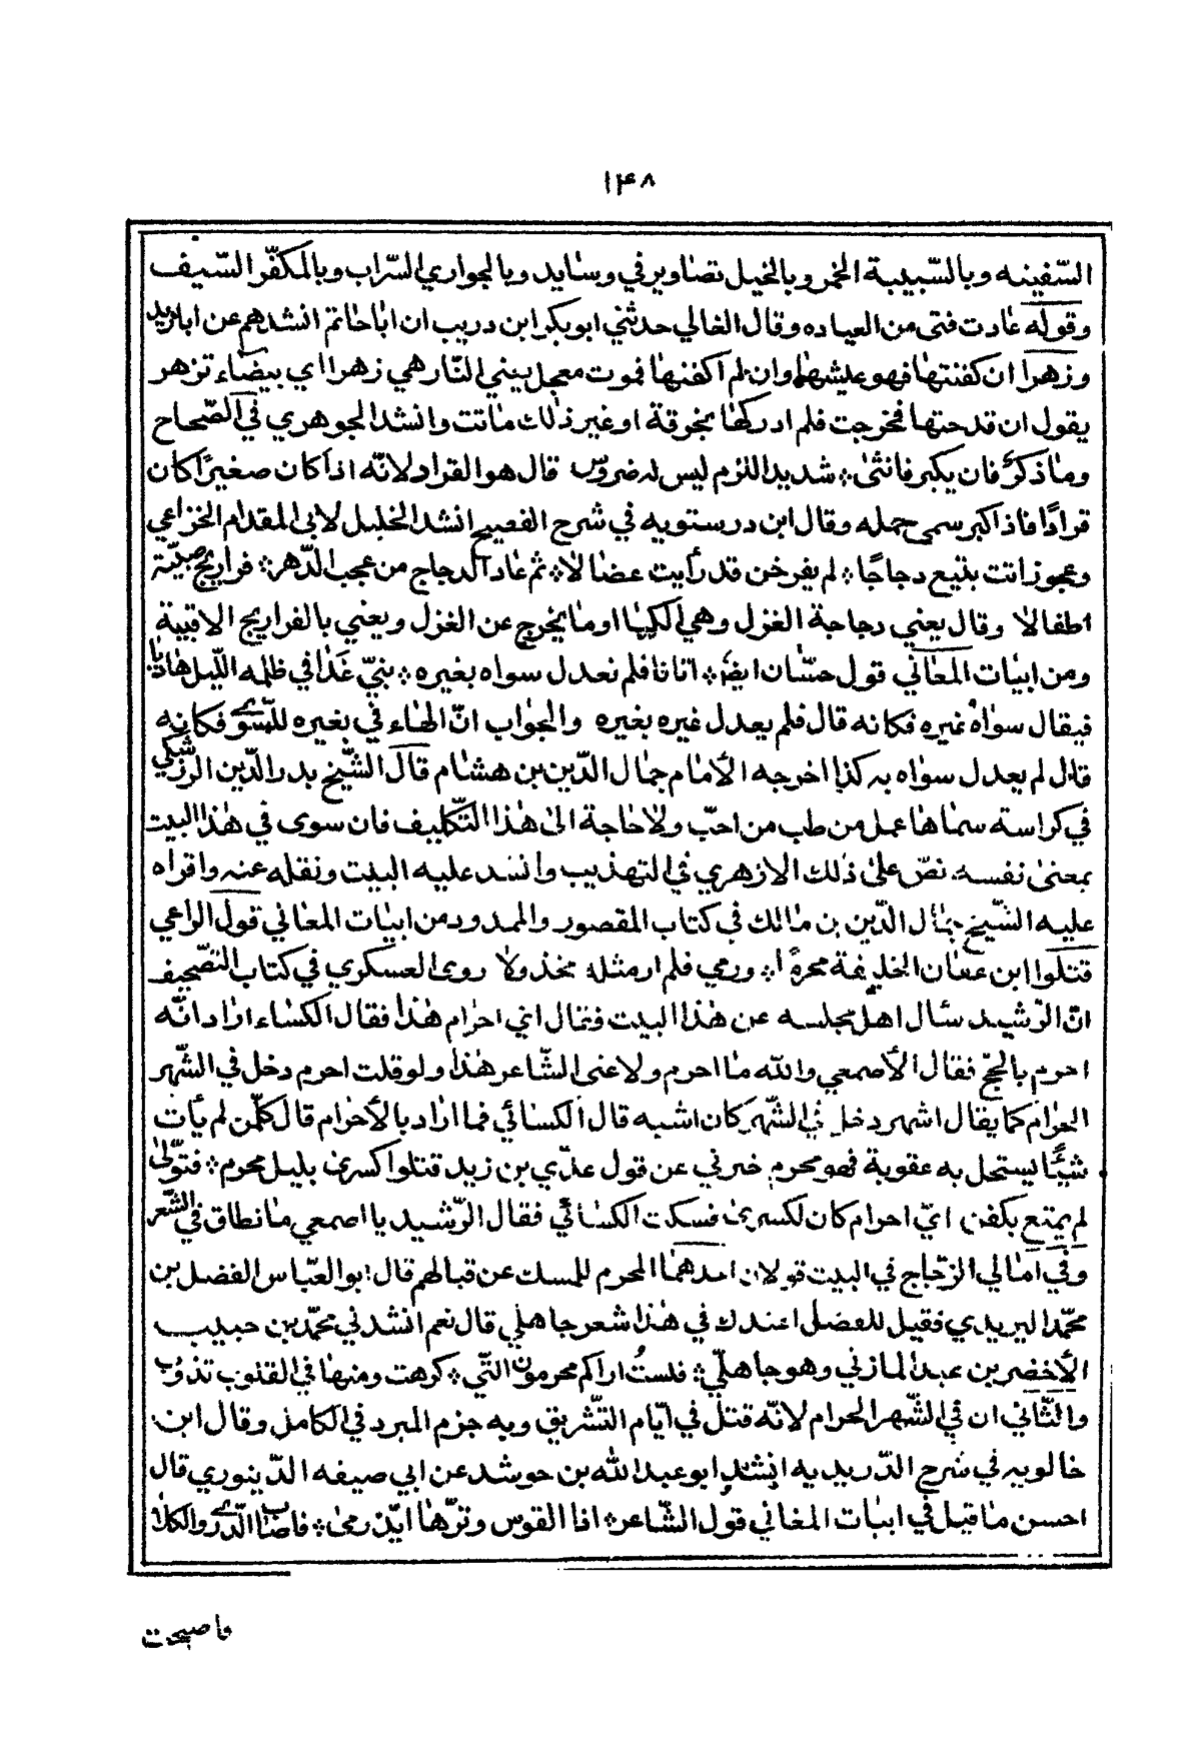 ١٤٨
السّفينه وبالسّبيبة الخمر وبالخيل تصاوير في وسايد وبالجواري السّراب وبالمكفّر السّيف
وقوله عادت فتى من العياده وقال الغالي حدثني ابو بكر ابن دريب ان اباحاتم انشدهم عن ابازيد
وزهرا ان كفنتها فهو عيشها وان لم اكفنها فموت معجل يبني النّار هي زهرا اي بيضاء تزهر
يقول ان قدحتها فخرجت فلم ادركها بخرقة او غير ذلك ماتت وانشد الجوهري في الصّحاح
وما ذكرٌ فان يكبر فانثى ؞ شديد اللزم ليس له ضروس قال هو القراد لانّه اذا كان صغيرًا كان
قرادًا فاذ اكبر سمى حمله وقال ابن درستويه في شرح الفصيح انشد الخليل لابى المقدام الخزاعي
وعجوز اتت بتبيع دجاجًا ؞ لم يفرخن قد رأيت عضالا ؞ ثم عاد الدجاج من عجب الدّهر ؞ فراريج صبيّة
اطفالا وقال يعني دجاجة الغزل وهي الكبة او ما يخرج عن الغزل ويعني بالفراريج الاقبية
ومن ابيات المعاني قول حسّان ايضًا ؞ اتانا فلم نعدل سواه بغيره ؞ بنيّ غدا في ظلمه الليل هاديا
فيقال سواه غيره فكانه قال فلم يعدل غيره بغيره والجواب انّ الهاء في بغيره للسّوى فكانه
قال لم يعدل سواه به كذا اخرجه الأمام جمال الدّين بن هشام قال الشّيخ بدر الدّين الزركشي
في كراسة سماها عمل من طب من احبّ ولا حاجة الى هذا التّكليف فان سوى في هذا البيت
بمعنى نفسه نصّ على ذلك الازهري في التهذيب وانشد عليه البيت ونقله عنه واقراه
عليه الشّيخ جمال الدّين بن مالك في كتاب المقصور والممدود من ابيات المعاني قول الراعي
قتلوا ابن عفان الخليفة محرمًا ؞ ورمي فلم ار مثله مخذولا روى العسكري في كتاب التصحيف
انّ الرّشيد سئال اهل مجلسه عن هذا البيت فقال اي احرام هذا فقال الكساء اراد انّه
احرم بالحجّ فقال الأصمعي والله ما احرم ولا عنى الشّاعر هذا ولو قلت احرم دخل في الشّهر
الحرام كما يقال اشهر دخل في الشّهر كان اشبه قال الكسائي فما اراد بالأحرام قال كلّ من لم يأت
شيئًا يستحل به عقوبة فهو محرم خبرني عن قول عدّي بن زيد قتلوا كسرى بليل محرم ؞ فتولّى
لم يمتع بكفن ايّ احرام كان لكسرى فسكت الكسائي فقال الرّشيد يا اصمعي ما نطاق في الشّعر
وفي امالي الزجّاج في البيت قولان احدهما المحرم للمسك عن قبالهم قال ابو العبّاس الفضل بن
محمّد اليريدي فقيل للفضل اعندك في هذا شعر جاهلي قال نعم انشدني محمّد بن حبيب
الأخضر بن عبد المازني وهو جاهليّ ؞ فلستُ اراكم محرمون التّي ؞ كرهت ومنها في القلوب تذوب
والثّاني ان في الشّهر الحرام لانّه قتل في ايّام التّشريق وبه جزم المبرد في الكامل وقال ابن
خالويه في شرح الدّريديه انشد ابو عبد الله بن حوشد عن ابي صيفه الدّينوري قال
احسن ما قيل في ابيات المغاني قول الشّاعر ؞ اذا القوس وترّها ايّد رمى ؞ فاصاب الذّرى والكلا
فاصبحت